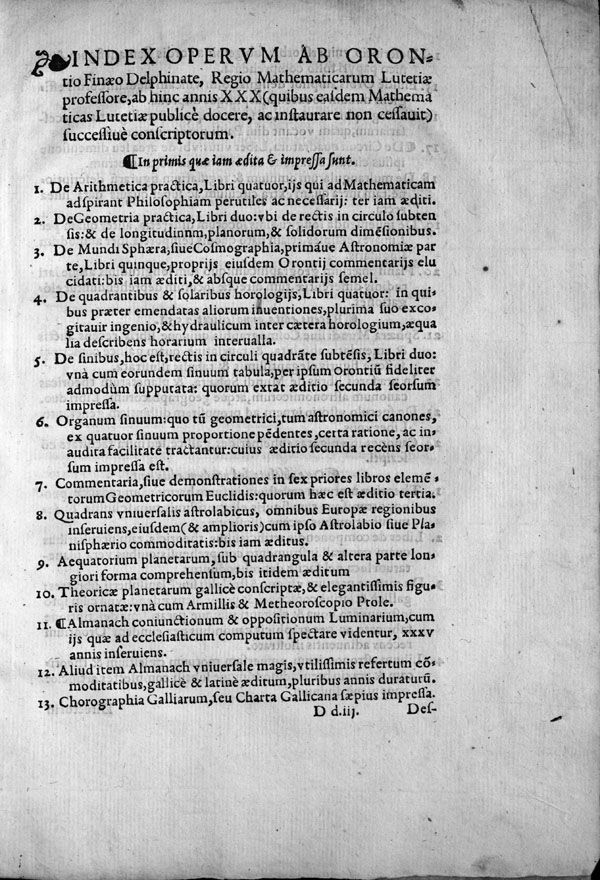 INDEX OPERVM AB ORON-
tio Finæo Delphinate, Regio Mathematicarum Lutetiæ
professore, ab hinc annis XXX (quibus easdem Mathema
ticas Lutetiæ publicè docere, ac instaurare non cessauit)
successiuè conscriptorum.
¶In primis quæ iam ædita & impressa sunt.
1. De Arithmetica practica, Libri quatuor, ijs qui ad Mathematicam
adspirant Philosophiam perutiles ac necessarij: ter iam æditi.
2. De Geometria practica, Libri duo: vbi de rectis in circulo subten
sis: & de longitudinnm, planorum, & solidorum dimẽsionibus.
3. De Mundi Sphæra, siue Cosmographia, primáue Astronomiæ par
te, Libri quinque, proprijs eiusdem Orontij commentarijs elu
cidati: bis iam æditi, & absque commentarijs semel.
4. De quadrantibus & solaribus horologijs, Libri quatuor: in qui
bus præter emendatas aliorum inuentiones, plurima suo exco-
gitauir ingenio, & hydraulicum inter cætera horologium, æqua
lia describens horarium interualla.
5. De sinibus, hoc est, rectis in circuli quadrãte subtẽsis, Libri duo:
vnà cum eorundem sinuum tabula, per ipsum Orontiũ fideliter
admodùm supputata: quorum extat æditio secunda seorsum
impressa.
6. Organum sinuum: quo tũ geometrici, tum astronomici canones,
ex quatuor sinuum proportione pẽdentes, certa ratione, ac in-
audita facilitate tractantur: cuius æditio secunda recèns seor-
sum impressa est.
7. Commentaria, siue demonstrationes in sex priores libros elemẽ-
torum Geometricorum Euclidis: quorum hæc est æditio tertia.
8. Quadrans vniuersalis astrolabicus, omnibus Europæ regionibus
inseruiens, eiusdem (& amplioris) cum ipso Astrolabio siue Pla-
nisphærio commoditatis: bis iam æditus.
9. Aequatorium planetarum, sub quadrangula & altera parte lon-
giori forma comprehensum, bis itidem æditum
10. Theoricæ planetarum gallicè conscriptæ, & elegantissimis figu-
ris ornatæ: vnà cum Armillis & Metheoroscopio Ptole.
11. ¶Almanach coniunctionum & oppositionum Luminarium, cum
ijs quæ ad ecclesiasticum computum spectare videntur, xxxv
annis inseruiens.
12. Aliud item Almanach vniuersale magis, vtilissimis refertum cõ-
moditatibus, gallicè & latinè æditum, pluribus annis duraturũ.
13. Chorographia Galliarum, seu Charta Gallicana sæpius impressa.
D d.iij. Des-